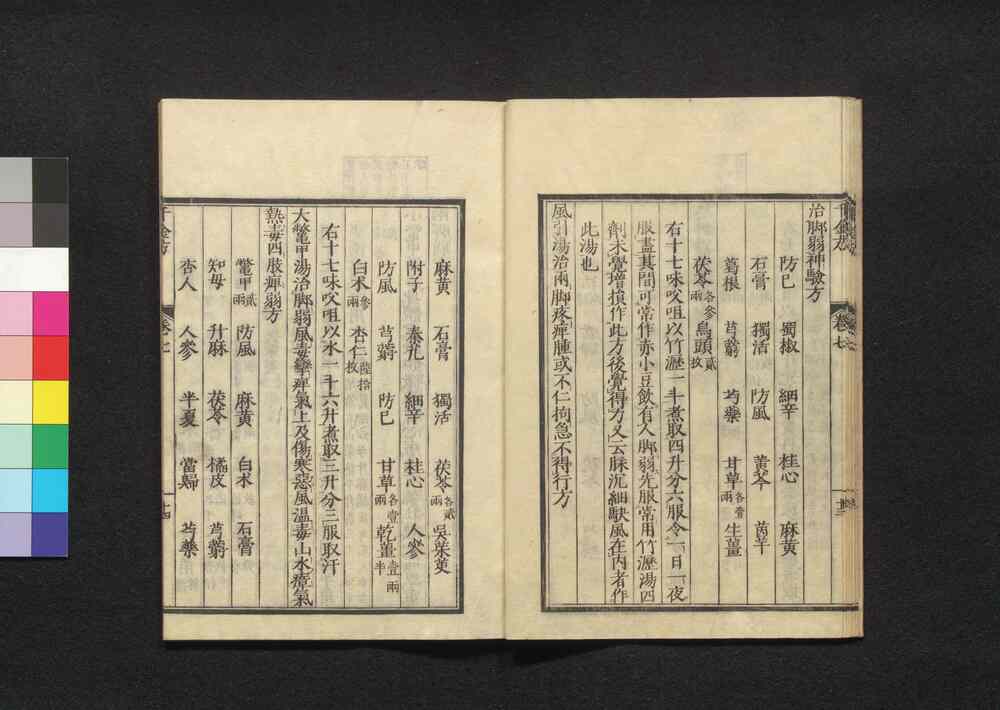 千金方
卷七
治脚弱神驗方
防巳 蜀椒 細辛 桂心 麻黄
石膏 獨活 防風 黄芩 茵芋
葛根 芎藭 芍藥 甘草各壹兩 生薑
茯苓各參兩 烏頭貳枚
右十七味㕮咀以竹瀝一斗煮取四升分六服令一日一夜
服盡其間可常作赤小豆飲有人脚弱先服常用竹瀝湯四
劑未覺增損作此方後覺得力又云脉沉細駃風在内者作
此湯也
風引湯治兩脚疼痺腫或不仁拘急不得行方
麻黄 石膏 獨活 茯苓各貳兩 吳茱萸
附子 秦艽 細辛 桂心 人參
防風 芎藭 防巳 甘草各壹兩 乾薑壹兩半
白术參兩 杏仁陸拾枚
右十七味㕮咀以水一斗六升煮取三升分三服取汗
大鼈甲湯治脚弱風毒攣痺氣上及傷寒惡風溫毒山水瘴氣
熱毒四肢痺弱方
鼈甲貳兩 防風 麻黄 白术 石膏
知母 升麻 茯苓 橘皮 芎藭
杏人 人參 半夏 當歸 芍藥
千金方
卷七
十四